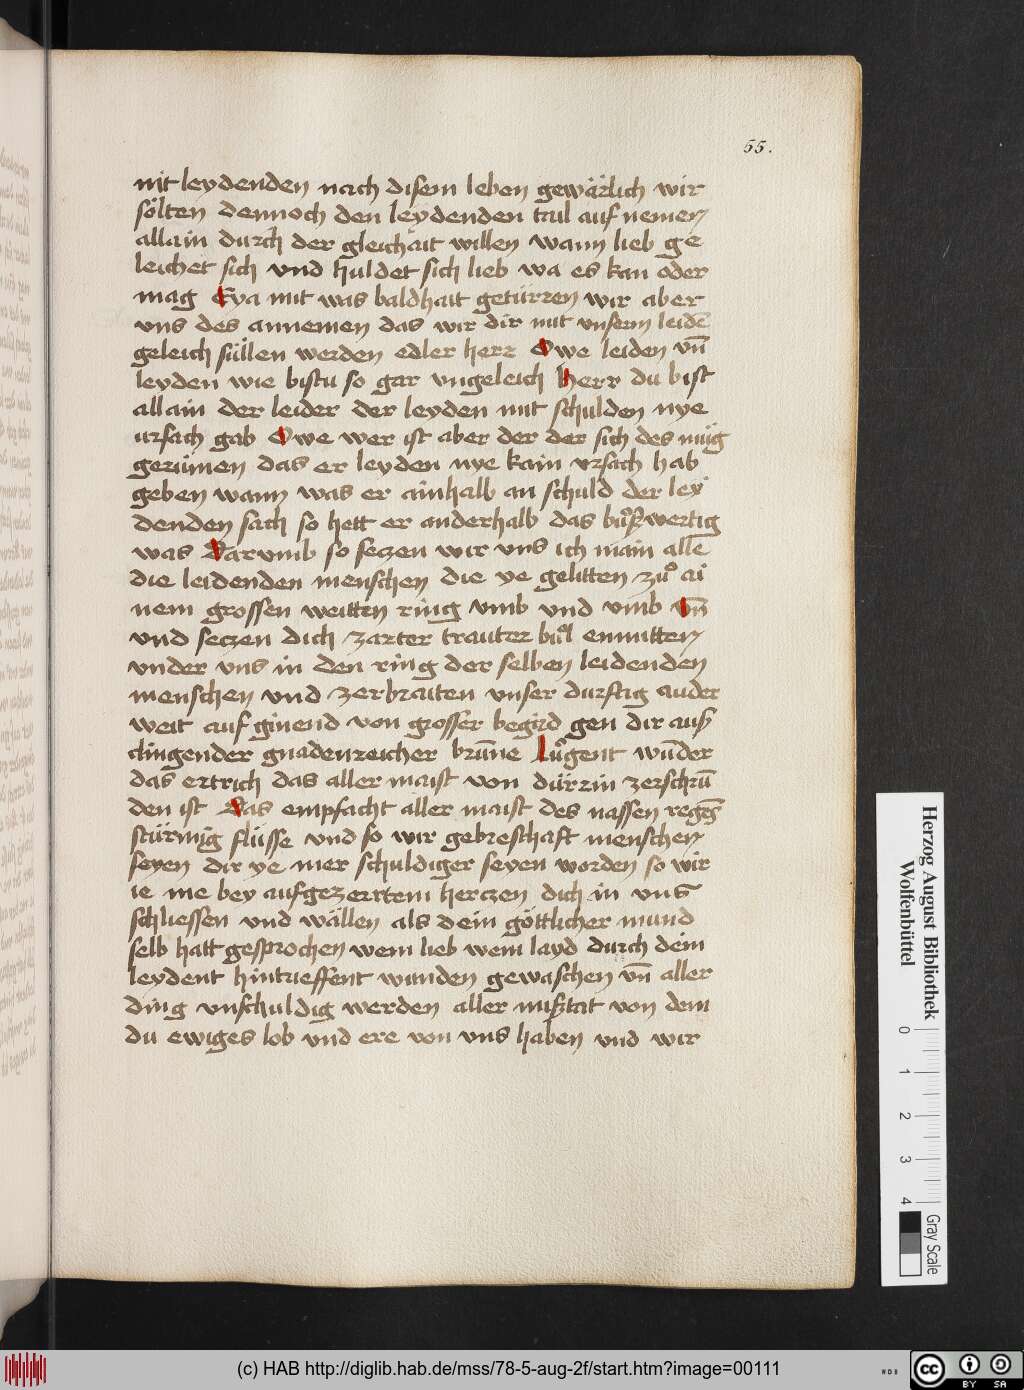 55.
nit leydenden nach disem leben gewärlich wir
sölten dennoch den leydenden tail auf nemen
allain durch der gleichait willen wann lieb ge
leichet sich vnd huldet sich lieb wa es kan oder
mag Eya mit was baldhait getürren wir aber
vns des annemen das wir dir mit vnserm leidē
geleich süllen werden edler herr Owe leiden vn̄
leyden wie bistu so gar vngeleich herr du bist
allain der leider der leyden mit schulden nye
ursach gab Owe wer ist aber der der sich des müg
gerümen das er leyden nye kain vrsach hab
geben wann was er ainhalb an schuld der ley
denden sach so hett er anderhalb das bůßwertig
was Darvmb so seczen wir vns ich main alle
die leidenden menschen die ye gelitten zů ai
nem grossen weitten ring vmb vnd vmb vn̄
vnd seczen dich zarter trauter bůl enmitten
vnder vns in den ring der selben leidenden
menschen vnd zerbraiten vnser durftig auder
weit auf ginend von grosser begird gen dir auß
clingender gnadenreicher brūne Lůgent wūder
das ertrich das aller maist von dürrin zerschrū
den ist Das empfacht aller maist des nassen regēs
stürmig flüsse vnd so wir gebreschaft menschen
seyen dir ye mer schuldiger seyen worden so wir
ie me bey aufgezerrtem herczen dich in vns
schliessen vnd wällen als dein göttlicher mund
selb hatt gesprochen wem lieb wem layd durch dein
leydent hintrieffent wunden gewaschen vn̄ aller
ding vnschuldig werden aller mißtat von dem
du ewiges lob vnd ere von vns haben vnd wir
Herzog August Bibliothek
Wolfenbüttel
0 1 2 3 4
Gray Scale
(c) HAB http://diglib.hab.de/mss/78-5-aug-2f/start.htm?image=00111
cc BY SA